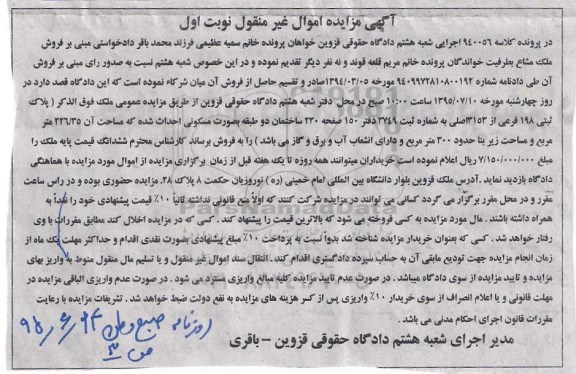 آگهی مزایده اموال غیر منقول نوبت اول
در پرونده کلاسه ۹۴۰۰۵۶ اجرایی شعبه هشتم دادگاه حقوقی قزوین خواهان پرونده خانم سمیه عظیمی فرزند محمد باقر دادخواستی مبنی بر فروش
ملک مشاع بطرفیت خواندگان پرونده خانم مریم قلعه قوند و نه نفر دیگر تقدیم نموده و در این خصوص شعبه هشتم نسبت به صدور رای مبنی بر فروش
آن طی دادنامه شماره ۹۴۰۹۹۷۲۸۱۰۸۰۰۱۹۲ مورخه ۱۳۹۴/۰۳/۰۵ صادر و تقسیم حاصل از فروش آن میان شرکاء نموده است که این دادگاه قصد دارد در
روز چهارشنبه مورخه ۱۳۹۵/۰۷/۱۰ ساعت ۱۰:۰۰ صبح در محل دفتر شعبه هشتم دادگاه حقوقی قزوین از طریق مزایده عمومی ملک فوق الذکر ( پلاک
ثبتی ۱۹۸ فرعی از ۳۱۵۳ اصلی به شماره ثبت ۳۷۴۹ دفتر ۱۵۰ صفحه ۲۳۰ ساختمان دو طبقه بصورت مسکونی احداث شده که مساحت آن ۲۲۶/۳۵ متر
مربع و مساحت زیر بنا حدود ۳۰۰ متر مربع و دارای انشعاب آب و برق و گاز می باشد ) را به فروش برساند کارشناس محترم ششدانگ قیمت پایه ملک را
مبلغ ۷/۱۵۰/۰۰۰/۰۰۰ ریال اعلام نموده است خریداران میتوانند همه روزه تا یک هفته قبل از زمان برگزاری مزایده از اموال مورد مزایده با هماهنگی
دادگاه بازدید نماید .آدرس ملک قزوین بلوار دانشگاه بین المللی امام خمینی (ره ) نوروزیان حکمت ۸ پلاک ۲۸. مزایده حضوری بوده و در راس ساعت
مقرر و در محل مقرر برگزار می گردد کسانی می توانند در مزایده شرکت کنند که اولاً منع قانونی نداشته ثانیاً ۱۰٪ قیمت پیشنهادی خود را نقداً به
همراه داشته باشند . مال مورد مزایده به کسی فروخته می شود که بالاترین قیمت را پیشنهاد کند . کسی که در مزایده اخلال کند مطابق مقررات با وی
رفتار خواهد شد . کسی که بعنوان خریدار مزایده شناخته شد بدواً نسبت به پرداخت ۱۰٪ مبلغ پیشنهادی بصورت نقدی اقدام و حداکثر مهلت یک ماه از
زمان انجام مزایده جهت تودیع مابقی آن به حساب سپرده دادگستری اقدام کند . انتقال سند اموال غیر منقول و یا تسلیم مال منقول منوط به واریز بهای
مزایده و تایید مزایده از سوی دادگاه میباشد . در صورت عدم تایید مزایده کلیه مبالغ واریزی مسترد می شود . در صورت عدم واریزی الباقی مزایده در
مهلت قانونی و یا اعلام انصراف از سوی خریدار ۱۰٪ واریزی پس از کسر هزینه های مزایده به نفع دولت ضبط خواهد شد . تشریفات مزایده با رعایت
مقررات قانون اجرای احکام مدنی می باشد .
مدیر اجرای شعبه هشتم دادگاه حقوقی قزوین – باقری
روزنامه صبح
ص ۳